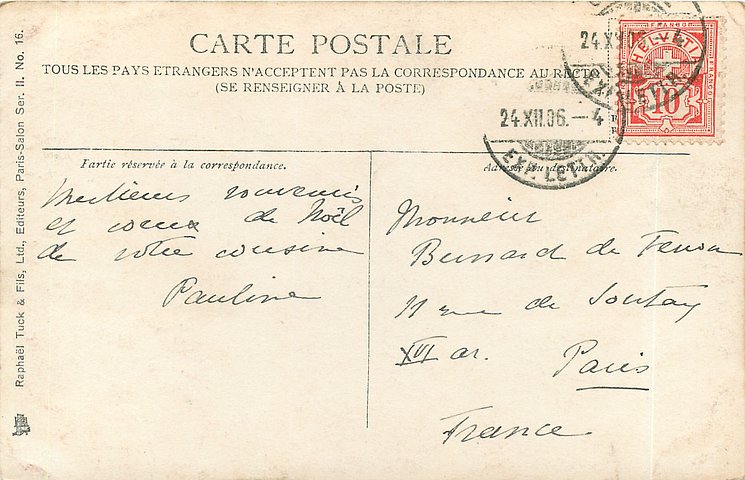 CARTE POSTALE
TOUS LES PAYS ETRANGERS N'ACCEPTENT PAS LA CORRESPONDANCE AU RECTO
(SE RENSEIGNER À LA POSTE)
FRANCO
HELVETIA
FRANCO
10
24.XII.06.-4
EXP. LETTR.
24.XII.06.-4
EXP. LETTR.
Partie réservée à la correspondance.
Meilleurs souvenirs
et voeux de Noël
de votre cousine
Pauline
Adresse du destinataire.
Monsieur
Bernard de
11 rue de Sontay
XVI ar. Paris
France
Raphaël Tuck & Fils, Ltd., Editeurs, Paris-Salon Ser. II. No. 16.